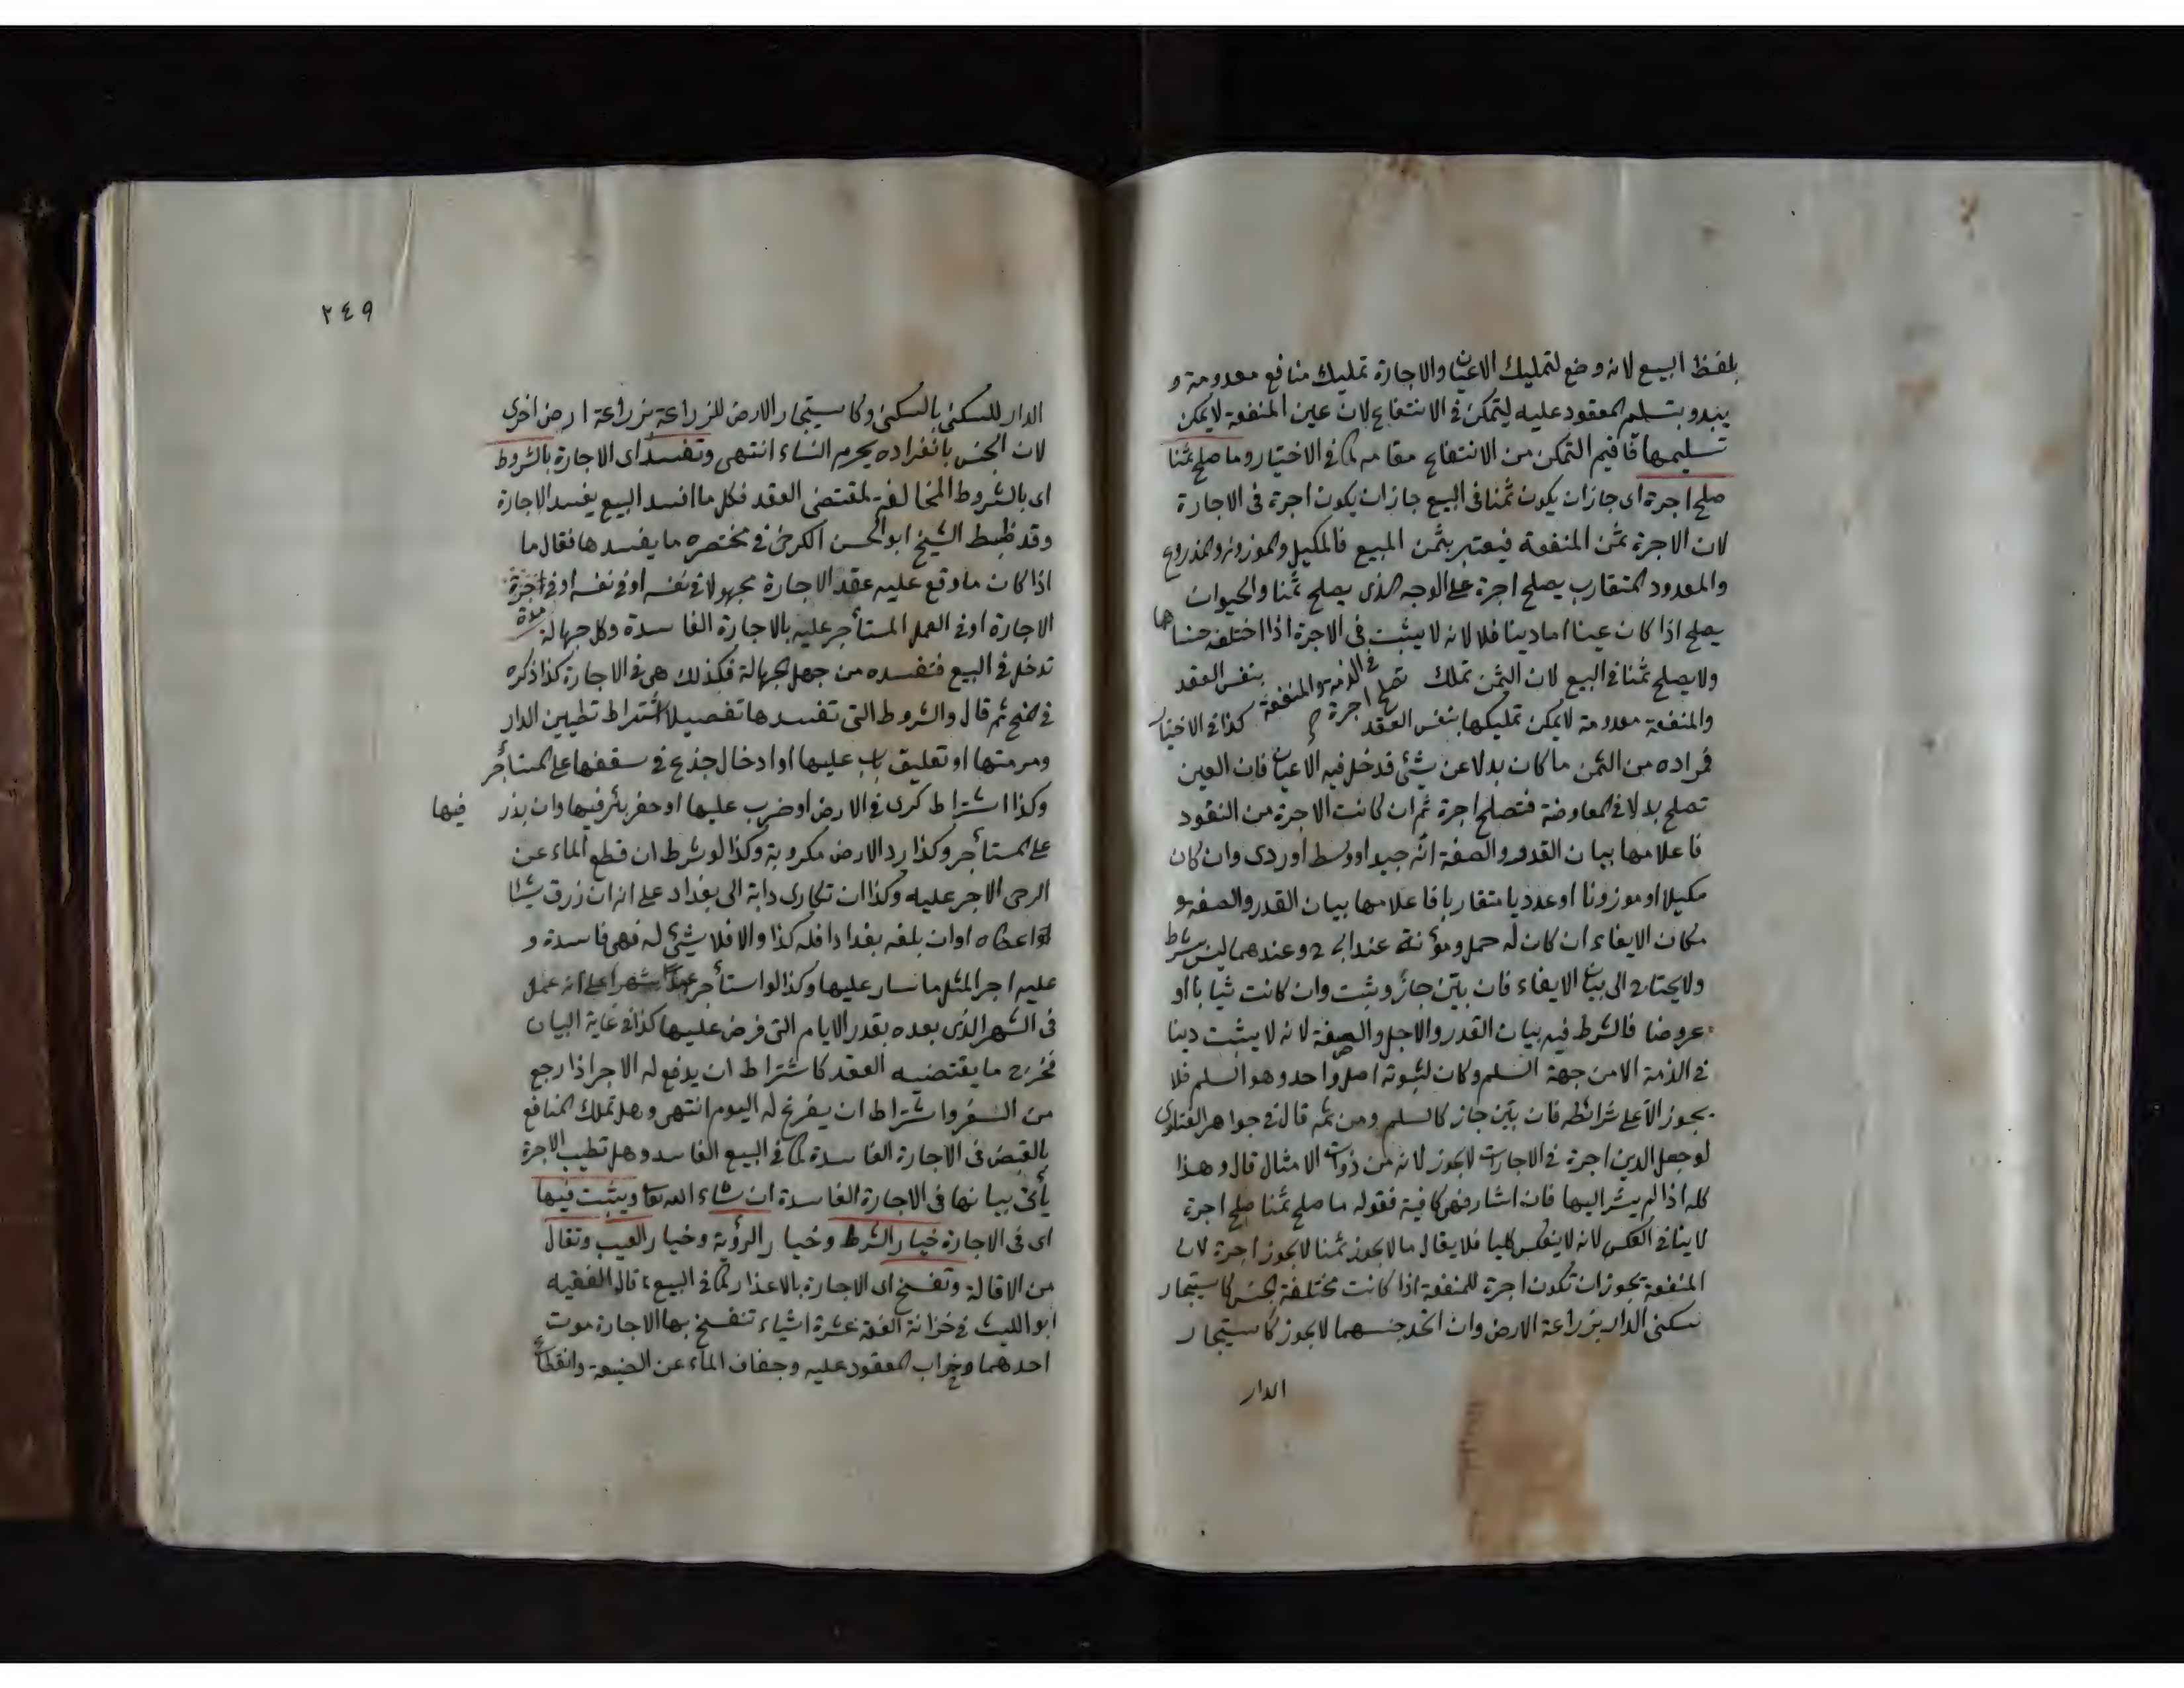 بلفظ البيع لانه وضع لتمليك الاعيان والاجارة تمليك منافع معدومة و
يبدو بتسلم المعقود عليه ليتمكن في الانتفاع لان عين المنفعة لا يمكن
تسليمها فاقيم التمكن من الانتفاع مقامه كما في الاختيار وما صلح ثمنا
صلح اجرة اى جاز ان يكون ثمنا في البيع جاز ان يكون اجرة في الاجارة
لان الاجرة ثمن المنفعة فيعتبر بثمن المبيع فالمكيل والموزون والمذروع
والمعدود المتقارب يصلح اجرة على الوجه الذى يصلح ثمنا والحيوان
يصلح اذا كان عينا اما دينا فلا لانه لا يثبت في الاجرة اذا اختلف جنساهما
ولا يصلح ثمنا في البيع لان الثمن تملك بنفس العقد
في الذمة والمنفعة تصلح اجرة
والمنفعة معدومة لا يمكن تمليكها بنفس العقد كذا في الاختيار
فمراده من الثمن ما كان بدلا عن شئ فدخل فيه الاعيان فان العين
تصلح بدلا في المعاوضة فتصلح اجرة ثم ان كانت الاجرة من النقود
فاعلامها ببيان القدر والصفة انه جيد او وسط او ردى وان كان
مكيلا او موزونا او عدديا متقاربا فاعلامها ببيان القدر والصفة و
مكان الايفاء ان كان له حمل ومؤنة عند ابى ح وعندهما ليس بشرط
ولا يحتاج الى بيان الايفاء فان بيّن جاز وثبت وان كانت ثيابا او
عروضا فالشرط فيه بيان القدر والاجل والصفة لانه لا يثبت دينا
في الذمة الا من جهة السلم وكان لثبوته اصل واحد وهو السلم فلا
يجوز الا على شرائطه فان بيّن جاز كالسلم ومن ثمه قال في جواهر الفتاوى
لو جعل الدين اجرة في الاجارات لا يجوز لانه من ذوات الامثال قال وهذا
كله اذا لم يشر اليها فان اشار فهى كافية فقوله ما صلح ثمنا صلح اجرة
لا ينافي العكس لانه لا ينعكس كليا فلا يقال ما لا يجوز ثمنا لا يجوز اجرة لان
المنفعة يجوز ان تكون اجرة للمنفعة اذا كانت مختلفة الجنس كاستيجار
سكنى الدار بزراعة الارض وان اتحد جنسهما لا يجوز كاستيجار
الدار
٢٤٩
الدار للسكنى بالسكنى وكاستيجار الارض للزراعة بزراعة ارض اخرى
لان الجنس بانفراده يحرم النساء انتهى وتفسد اى الاجارة بالشروط
اى بالشروط المخالفة لمقتضى العقد فكل ما افسد البيع يفسد الاجارة
وقد ظبط الشيخ ابو الحسن الكرخى في مختصره ما يفسدها فقال ما
اذا كان ما وقع عليه عقد الاجارة مجهولا في نفسه او في نفسه او في اجرة
مدة
الاجارة او في العمل المستأجر عليه بالاجارة الفاسدة وكل جهالة
تدخل في البيع فتفسده من جهل الجهالة فكذلك هى في الاجارة كذا ذكره
في ثم قال والشروط التى تفسدها تفصيلا اشتراط تطيين الدار
ومرمتها او تعليق باب عليها او ادخال جذع في سقفها على المستأجر
وكذا اشتراط كرى في الارض او ضرب عليها او حفر بئر فيها وان بذر فيها
على المستأجر وكذا رد الارض مكروبة وكذا لو شرط ان قطع الماء عن
الرحى الاجر عليه وكذا ان تكارى دابة الى بغداد على انه ان رزق شيئا
اعطاه او ان بلغه بغداد فله كذا والا فلا شئ له فهى فاسدة و
عليه اجر المثل ما سار عليها وكذا لو استأجر عبدا شهرا على انه عمل
في الشهر الذى بعده بقدر الايام التى فرض عليها كذا في غاية البيان
فخرج ما يقتضيه العقد كاشتراط ان يدفع له الاجر اذا رجع
من السفر واشتراط ان يفرغ له اليوم انتهى وهل تملك المنافع
بالقبض في الاجارة الفاسدة كما في البيع الفاسد وهل تطيب الاجرة
يأتى بيانها في الاجارة الفاسدة ان شاء الله تعا ويثبت فيها
اى في الاجارة خيار الشرط وخيار الرؤية وخيار العيب وتقال
من الاقالة وتفسخ اى الاجارة بالاعذار كما في البيع، قال الفقيه
ابو الليث في خزانة الفقه عشرة اشياء تنفسخ بها الاجارة موت
احدهما وخراب المعقود عليه وجفاف الماء عن الضيعة وانقطاع